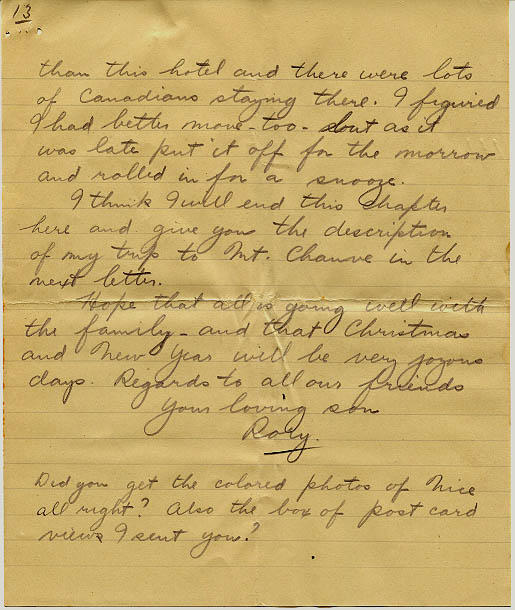 13
than this hotel and there were lots
of Canadians staying there. I figured
I had better move - too - but as it
was late put it off for the morrow
and rolled in for a snooze.
I think I will end this chapter
here and give you the description
of my trip to Mt. Chauve in the
next letter.
Hope that all is going well with
the family - and that Christmas
and New Year will be very joyous
days. Regards to all our friends
Your loving son
Rory.
Did you get the colored photos of Nice
all right? Also the box of post card
views I sent you?